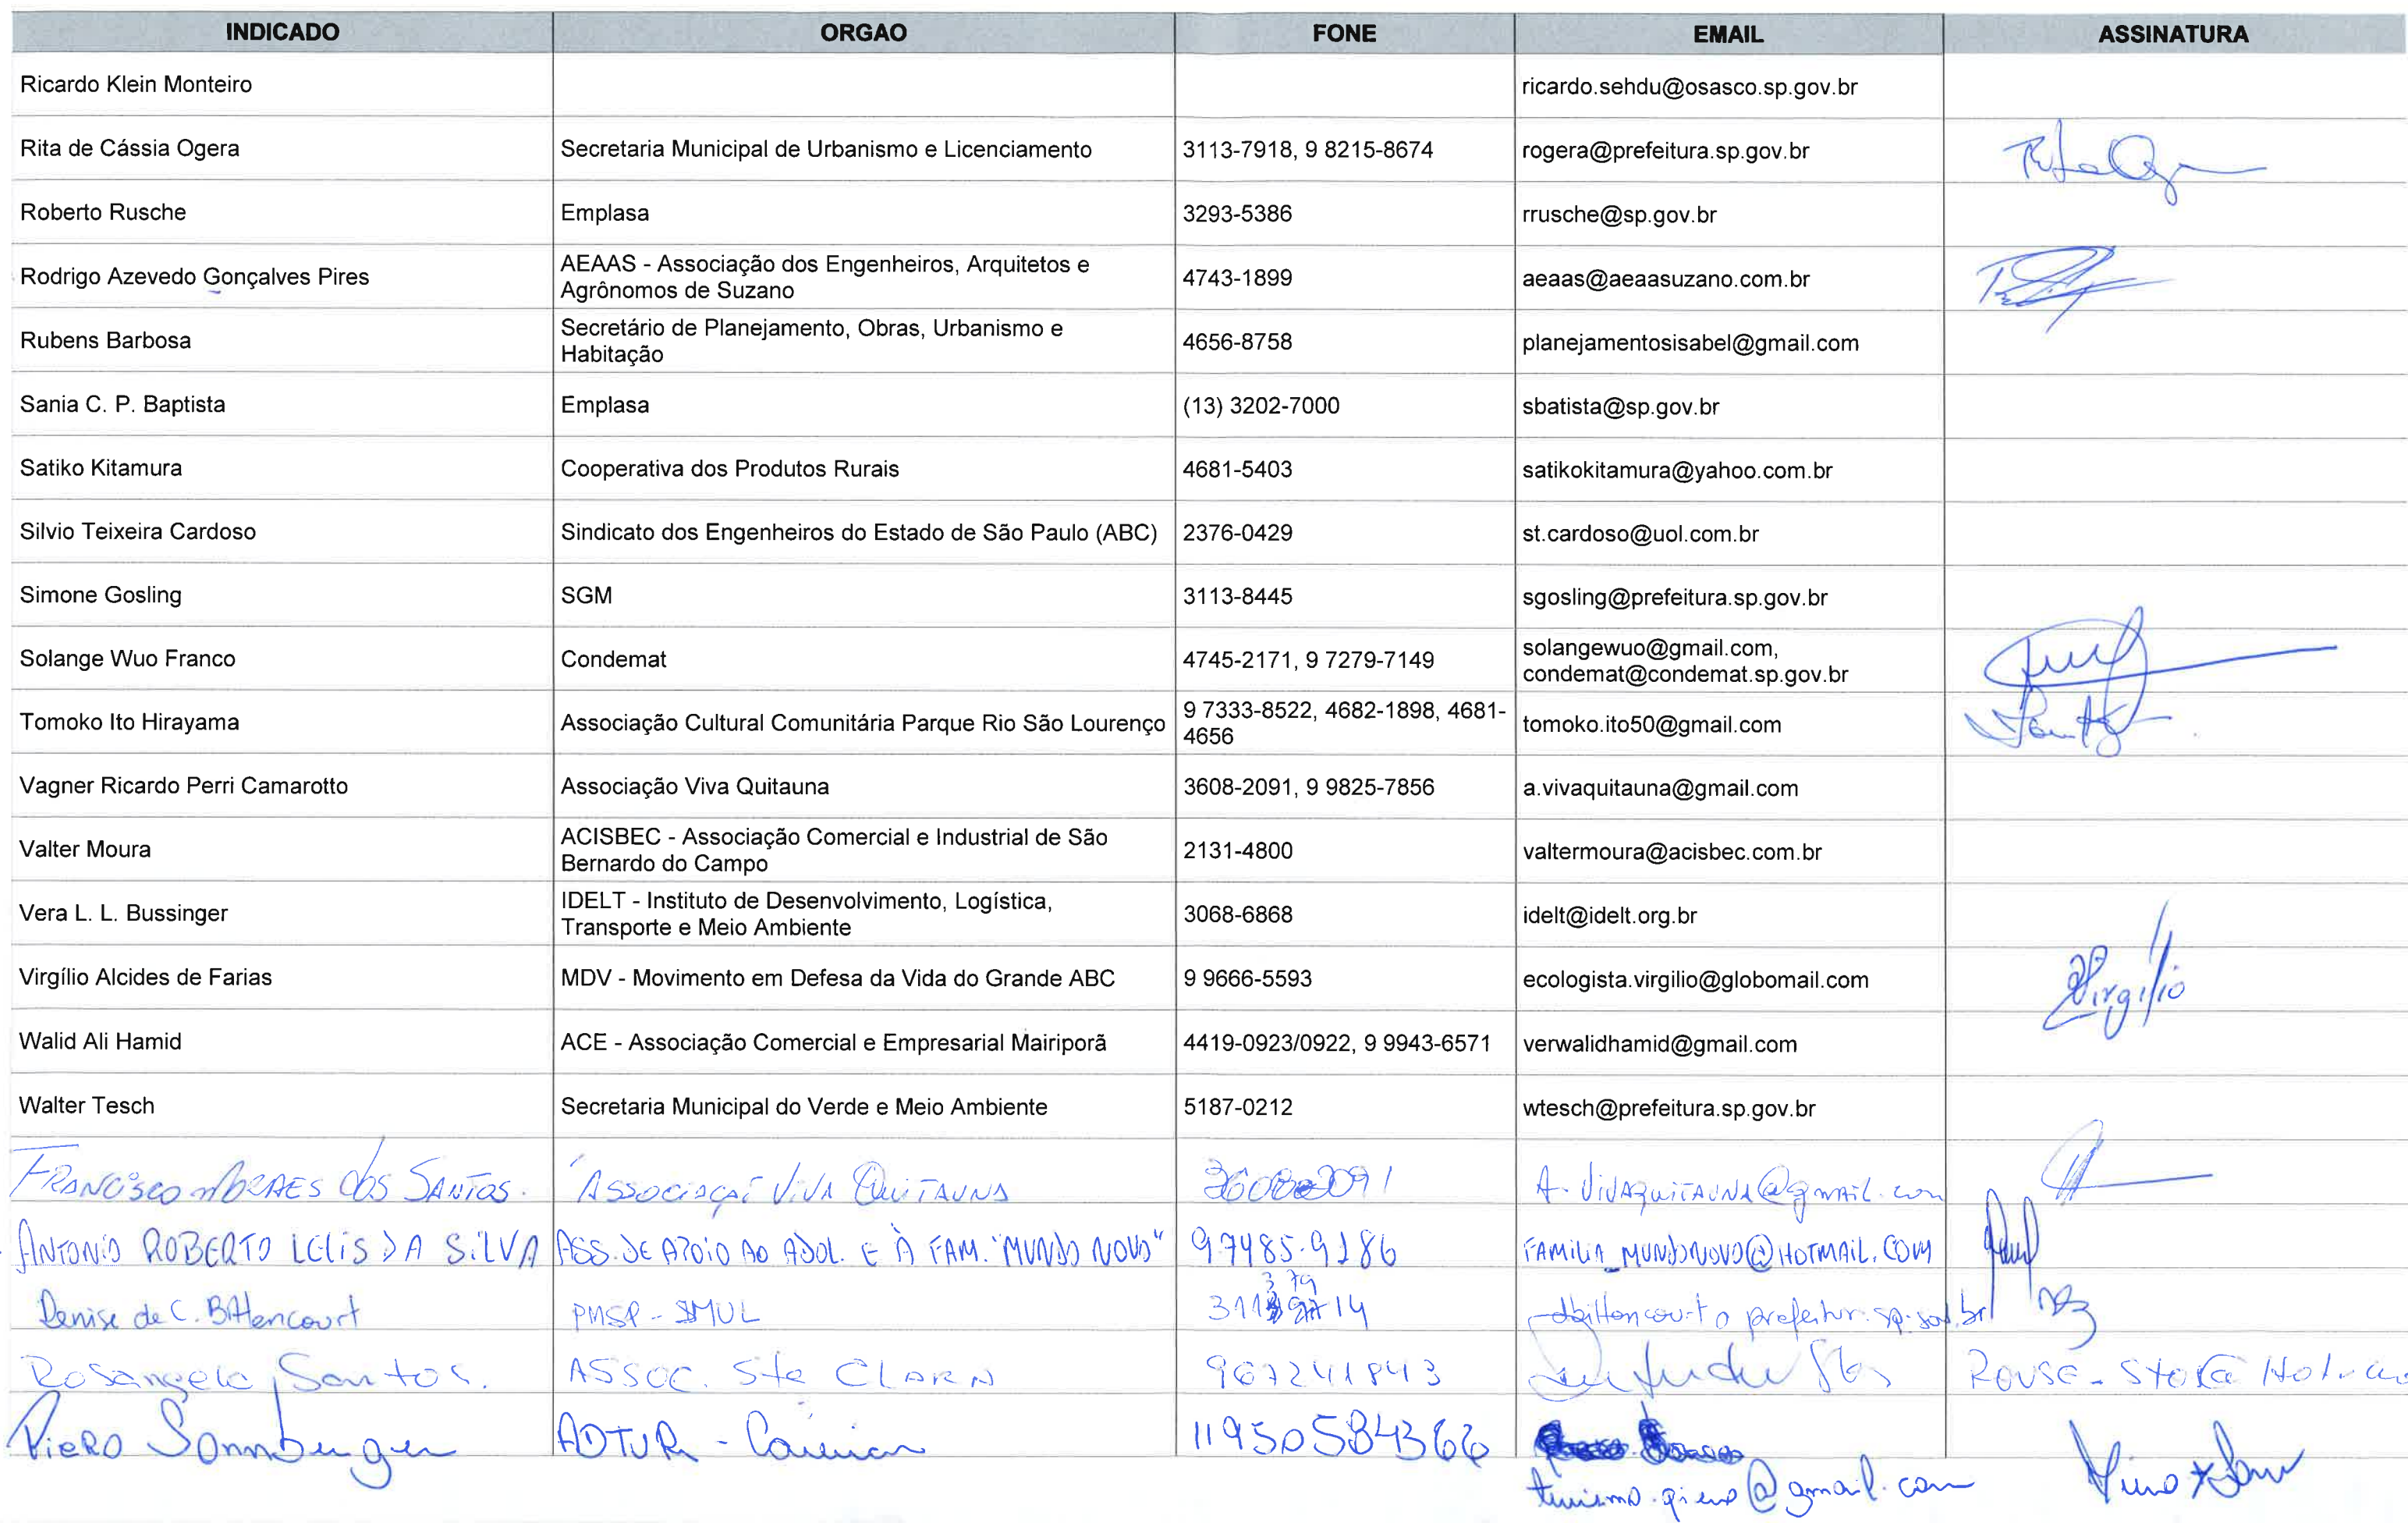 INDICADO ORGAO FONE EMAIL ASSINATURA
Ricardo Klein Monteiro ricardo.sehdu@osasco.sp.gov.br
Rita de Cássia Ogera Secretaria Municipal de Urbanismo e Licenciamento 3113-7918, 9 8215-8674 rogera@prefeitura.sp.gov.br
Roberto Rusche Emplasa 3293-5386 rrusche@sp.gov.br
Rodrigo Azevedo Gonçalves Pires AEAAS - Associação dos Engenheiros, Arquitetos e
Agrônomos de Suzano 4743-1899 aeaas@aeaasuzano.com.br
Rubens Barbosa Secretário de Planejamento, Obras, Urbanismo e
Habitação 4656-8758 planejamentosisabel@gmail.com
Sania C. P. Baptista Emplasa (13) 3202-7000 sbatista@sp.gov.br
Satiko Kitamura Cooperativa dos Produtos Rurais 4681-5403 satikokitamura@yahoo.com.br
Silvio Teixeira Cardoso Sindicato dos Engenheiros do Estado de São Paulo (ABC) 2376-0429 st.cardoso@uol.com.br
Simone Gosling SGM 3113-8445 sgosling@prefeitura.sp.gov.br
Solange Wuo Franco Condemat 4745-2171, 9 7279-7149 solangewuo@gmail.com,
condemat@condemat.sp.gov.br
Tomoko Ito Hirayama Associação Cultural Comunitária Parque Rio São Lourenço 9 7333-8522, 4682-1898, 4681-
4656 tomoko.ito50@gmail.com
Vagner Ricardo Perri Camarotto Associação Viva Quitauna 3608-2091, 9 9825-7856 a.vivaquitauna@gmail.com
Valter Moura ACISBEC - Associação Comercial e Industrial de São
Bernardo do Campo 2131-4800 valtermoura@acisbec.com.br
Vera L. L. Bussinger IDELT - Instituto de Desenvolvimento, Logística,
Transporte e Meio Ambiente 3068-6868 idelt@idelt.org.br
Virgílio Alcides de Farias MDV - Movimento em Defesa da Vida do Grande ABC 9 9666-5593 ecologista.virgilio@globomail.com Virgílio
Walid Ali Hamid ACE - Associação Comercial e Empresarial Mairiporã 4419-0923/0922, 9 9943-6571 verwalidhamid@gmail.com
Walter Tesch Secretaria Municipal do Verde e Meio Ambiente 5187-0212 wtesch@prefeitura.sp.gov.br
FRANCISCO MORAES DOS SANTOS. VIVA QUITAUNA A.VIVAQUITAUNA@gmail.com
ANTONIO ROBERTO LELIS DA SILVA ASS. DE APOIO AO ADOL. E À FAM. "MUNDO NOVO" 97485.9186 FAMILIA_MUNDONOVO@HOTMAIL.COM
Denise de C. Bittencourt PMSP - SMUL
Rosangela Santos. ASSOC. Sta CLARA 967241843
PIERO ADTUR 11950584366
@gmail.com